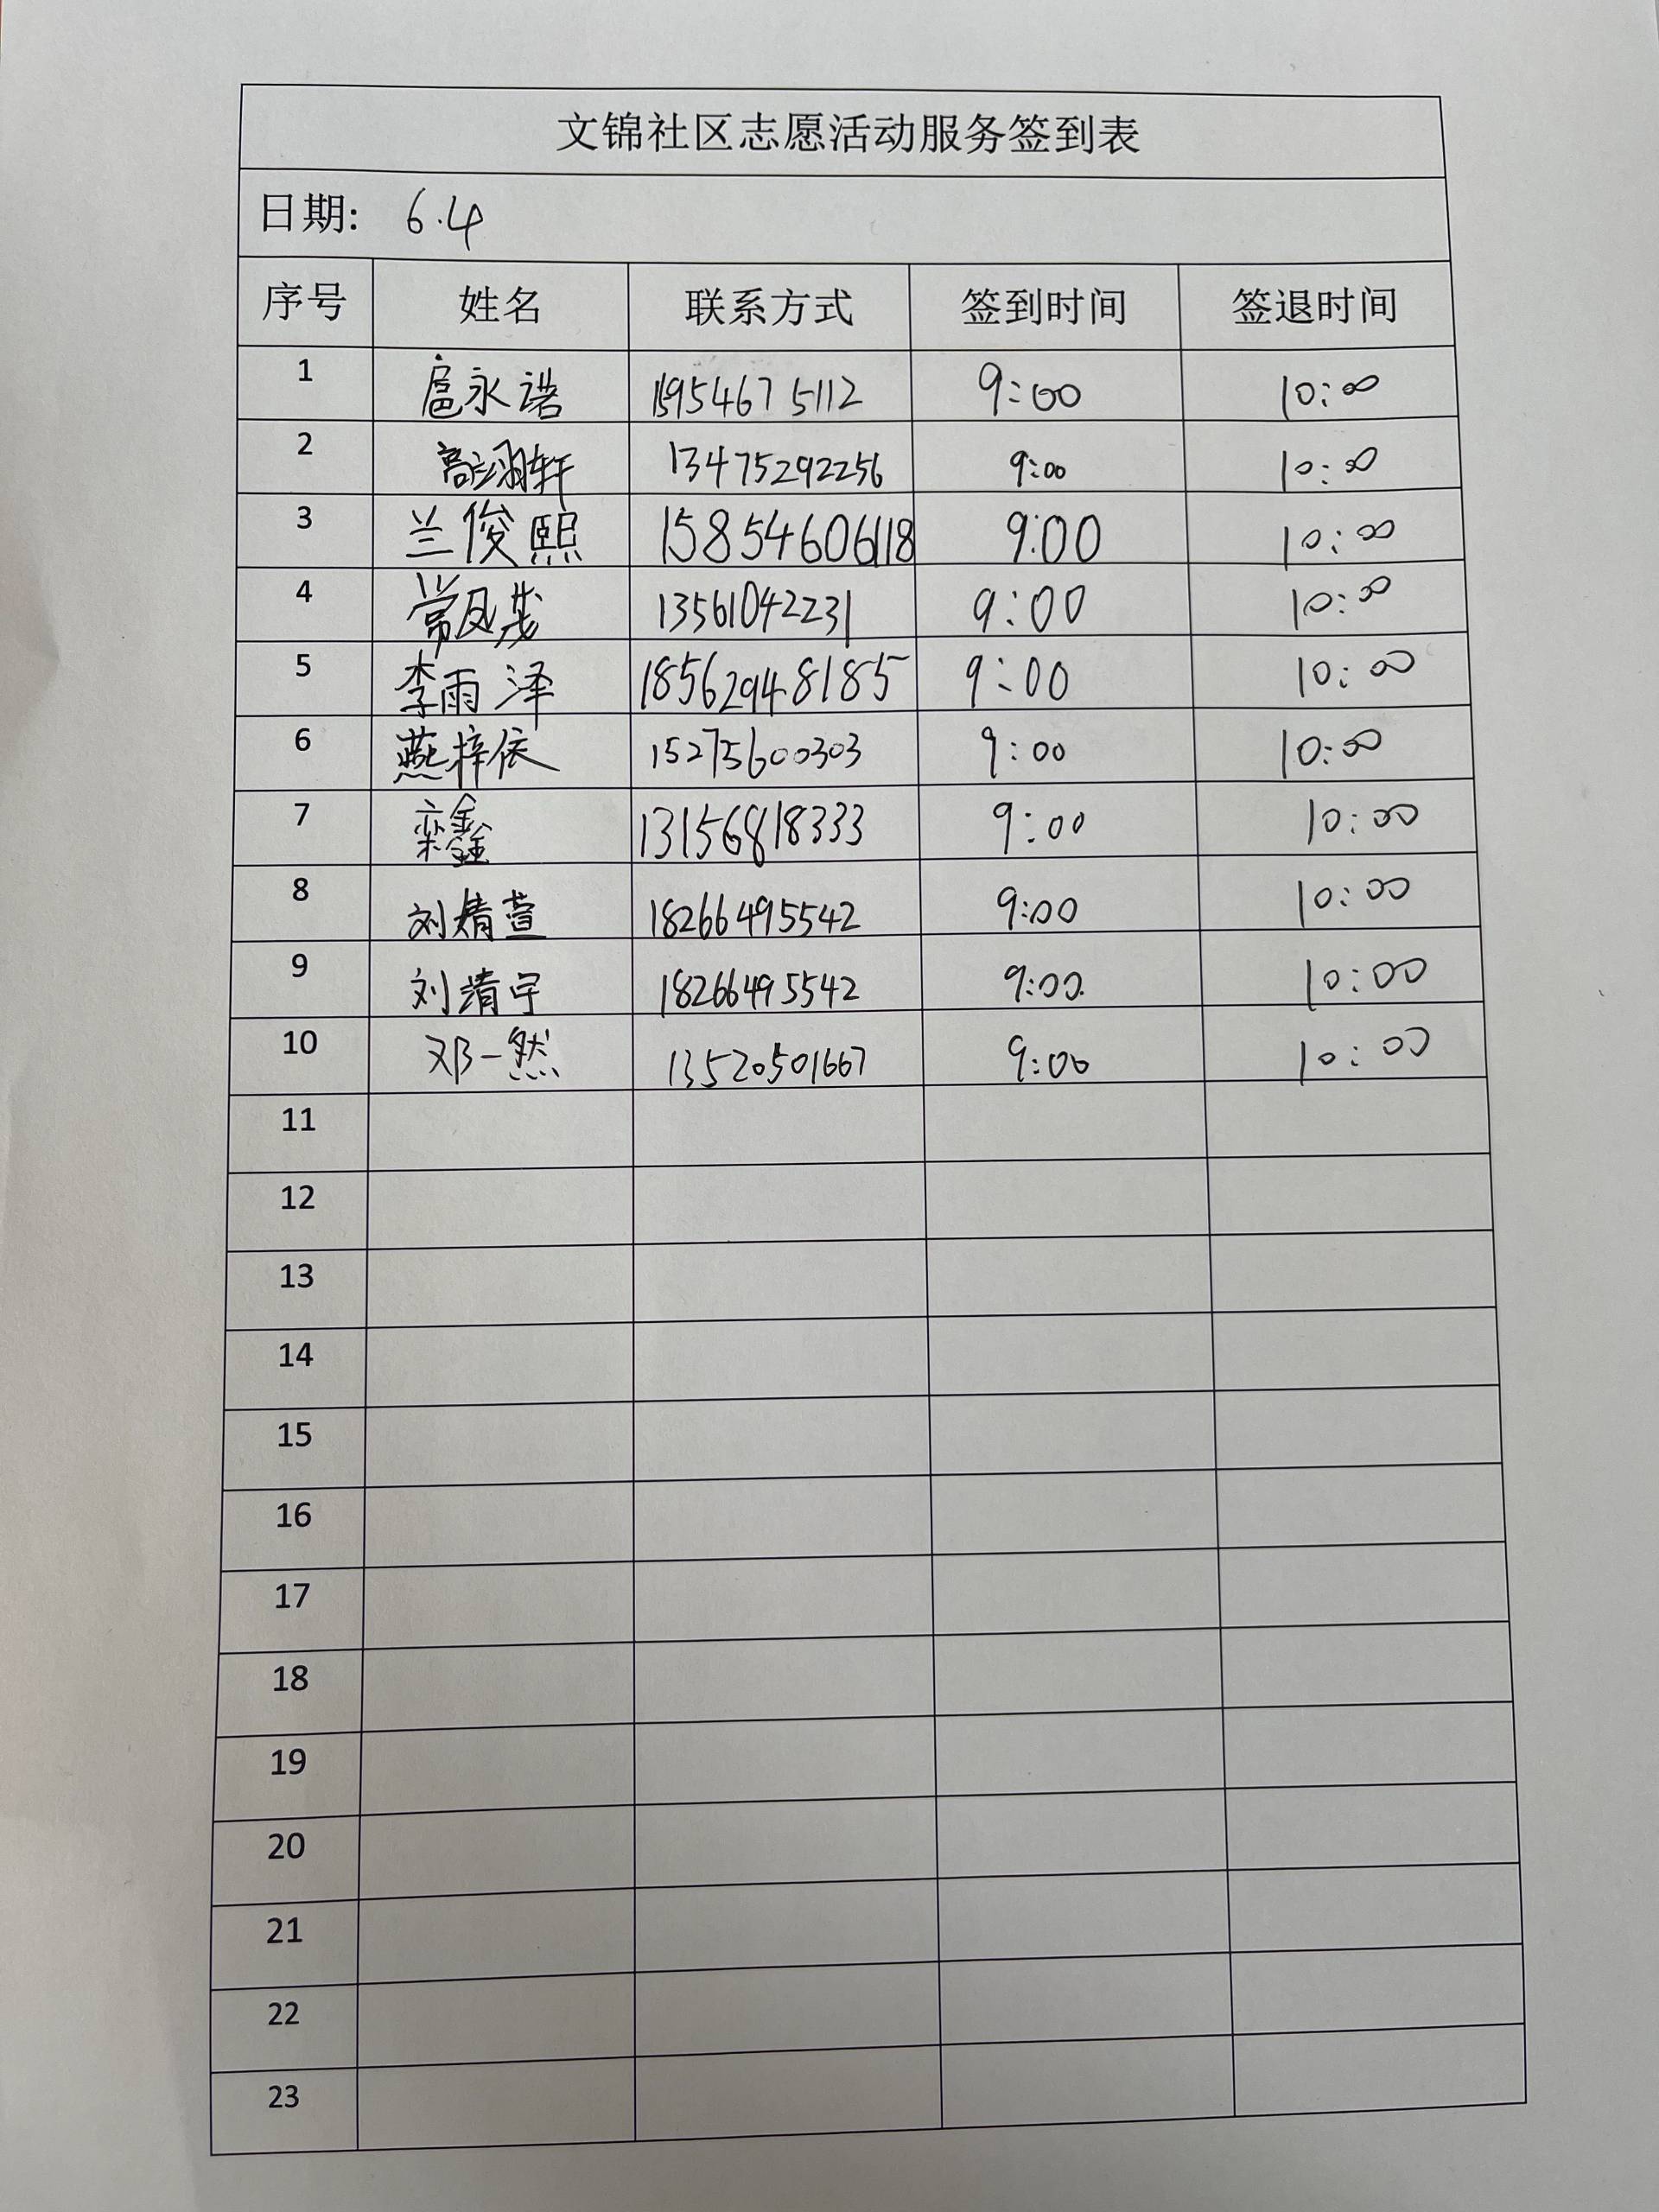 文锦社区志愿活动服务签到表
日期: 6.4
序号 姓名 联系方式 签到时间 签退时间
1 扈永诰 15954675112 9:00 10:00
2 高立翔轩 13475292256 9:00 10:00
3 兰俊熙 15854606118 9:00 10:00
4 常凤茂 13561042231 9:00 10:00
5 李雨泽 18562948185 9:00 10:00
6 燕梓依 15275600303 9:00 10:00
7 栾鑫 13156818333 9:00 10:00
8 刘婧萱 18266495542 9:00 10:00
9 刘靖宇 18266495542 9:00 10:00
10 邓一然 13520501667 9:00 10:00
11
12
13
14
15
16
17
18
19
20
21
22
23